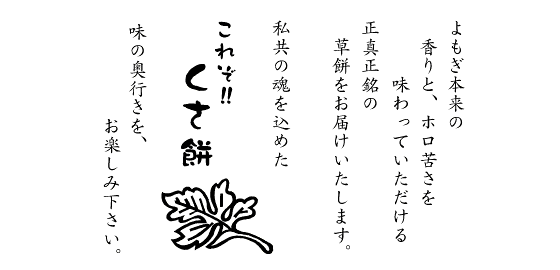 よもぎ本来の
香りと、ホロ苦さを
味わっていただける
正真正銘の
草餅をお届けいたします。
私共の魂を込めた
これぞ!!
くさ餅
味の奥行きを、
お楽しみ下さい。